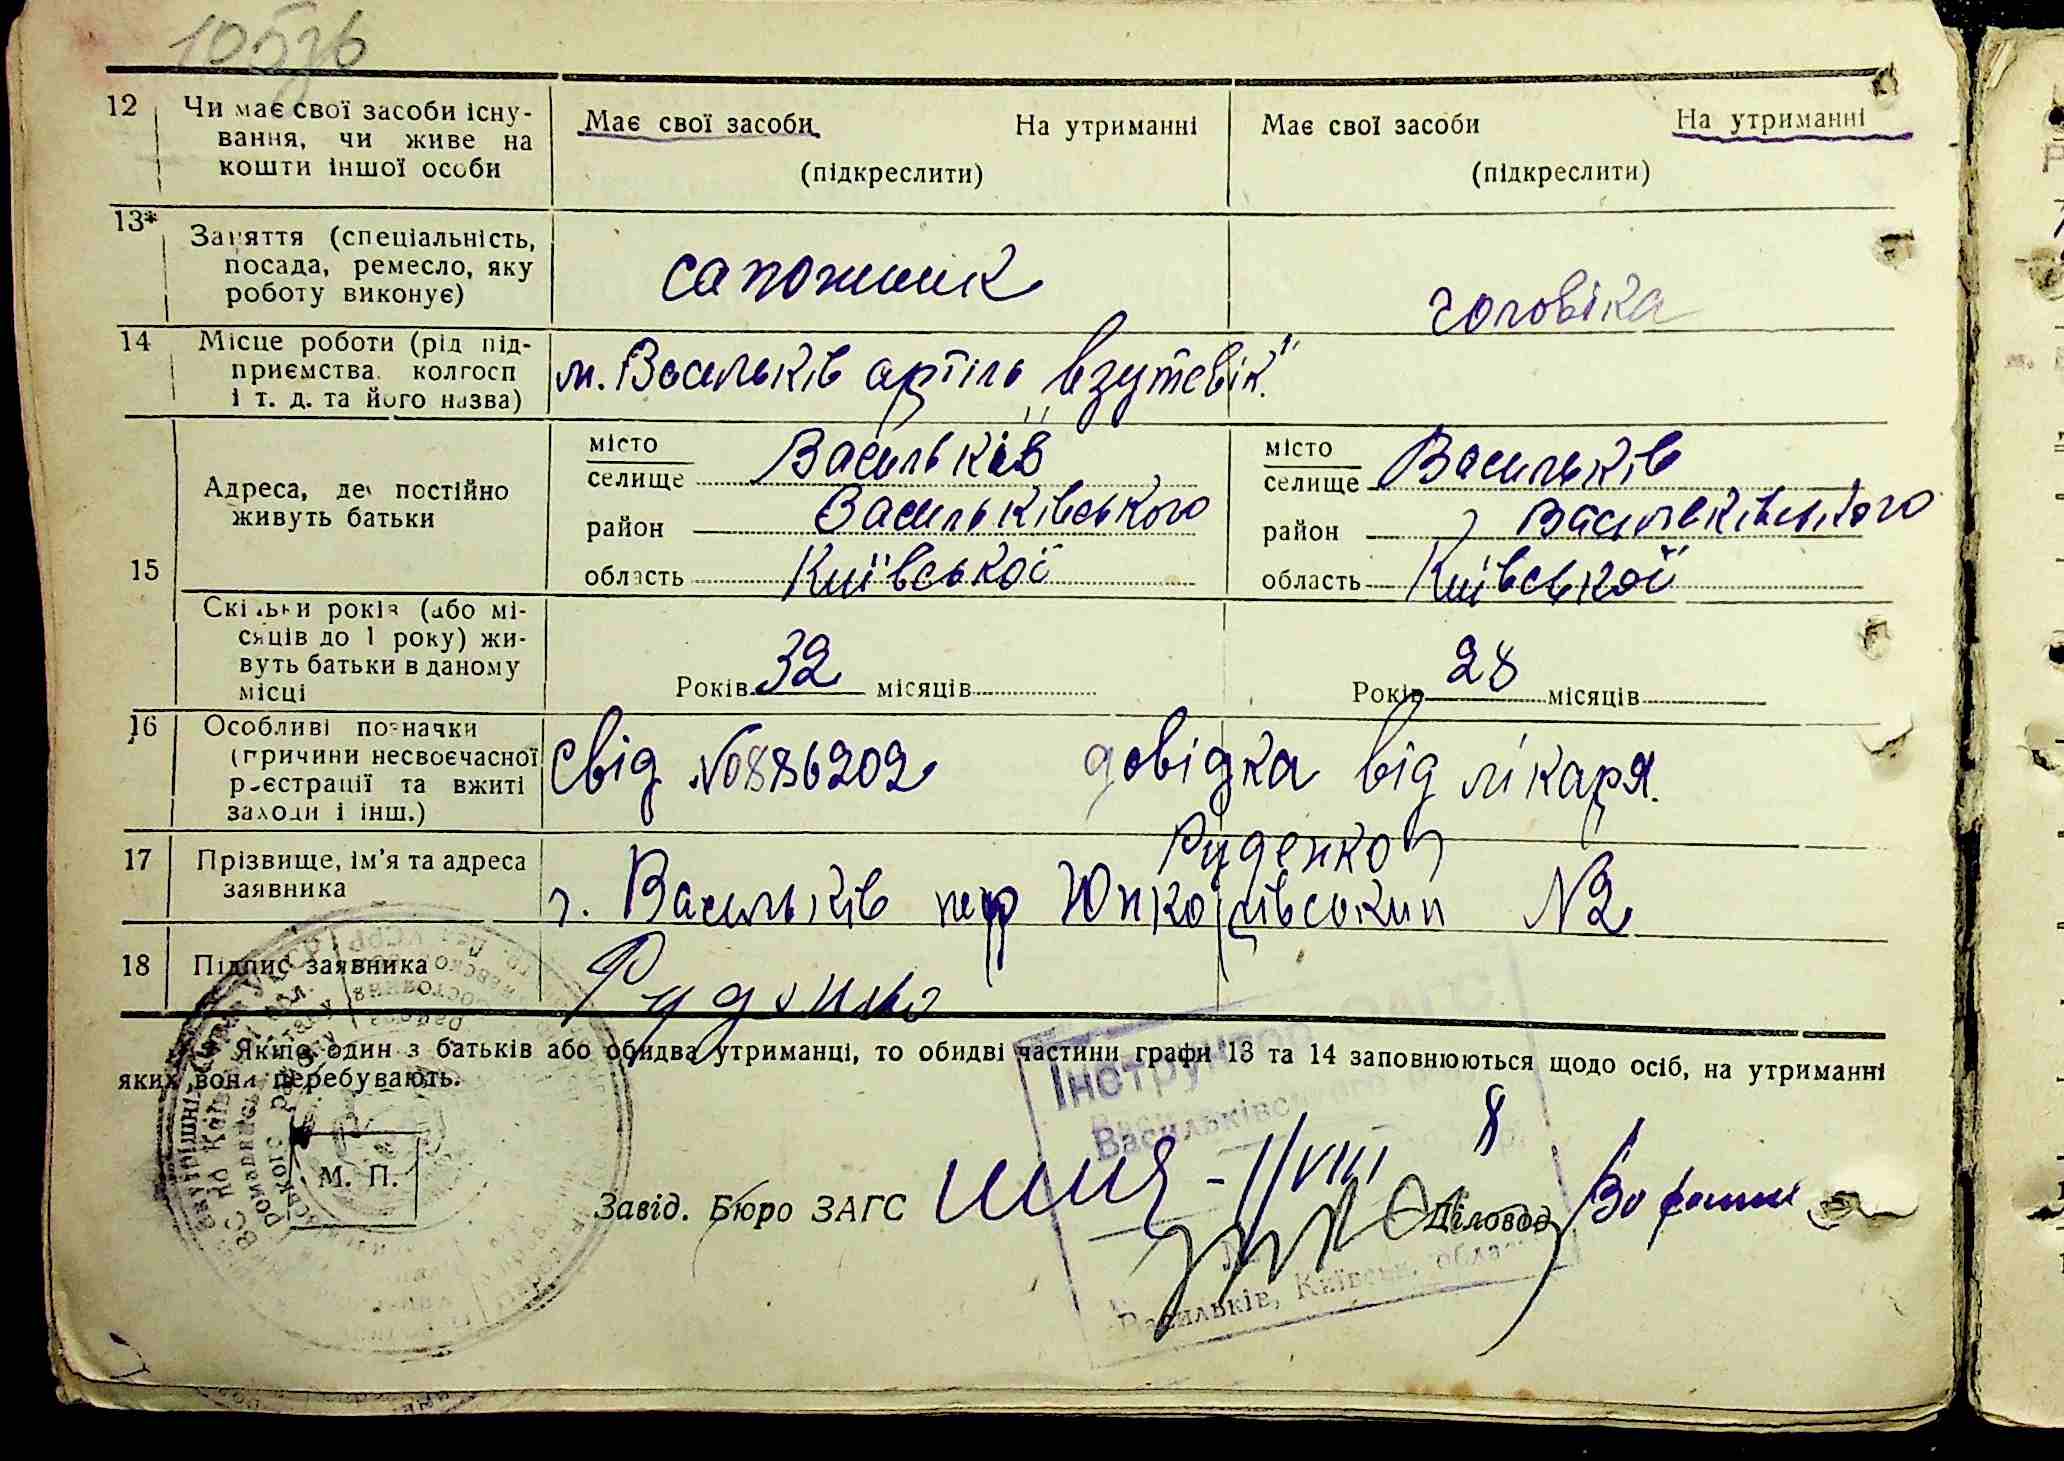 105зв
12 Чи має свої засоби існу-
вання, чи живе на
кошти іншої особи
Має свої засоби На утриманні
(підкреслити)
Має свої засоби На утриманні
(підкреслити)
13* Заняття (спеціальність,
посада, ремесло, яку
роботу виконує)
сапожник
чоловіка
14 Місце роботи (рід під-
приємства, колгосп
і т. д. та його назва)
м. Васильків артіль взутевік"
15 Адреса, де постійно
живуть батьки
місто
селище Васильків
район Васильківського
область Київської
місто
селище Васильків
район Васильківського
область Київської
Скільки років (або мі-
сяців до 1 року) жи-
вуть батьки в даному
місці
Років 32 місяців
Років 28 місяців
16 Особливі позначки
(причини несвоєчасної
реєстрації та вжиті
заходи і інш.)
Свід №0886202 довідка від лікаря.
17 Прізвище, ім'я та адреса
заявника
Руденко
г. Васильків пер №2
18 Підпис заявника
Руденко
Якщо один з батьків або обидва утриманці, то обидві частини графи 13 та 14 заповнюються щодо осіб, на утриманні
яких вони перебувають.
Інструктор ЗАГС
Васильківського
М. П.
Завід. Бюро ЗАГС
VIII
Діловод
Васильків, Київськ. област